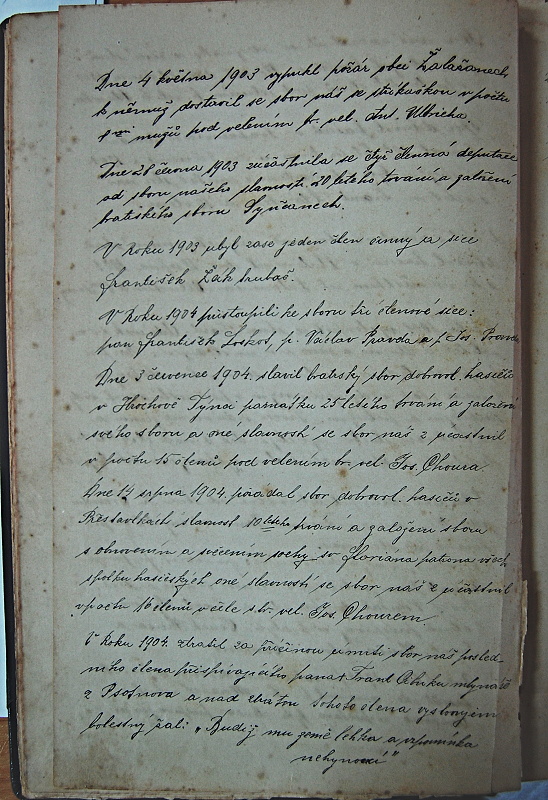 Dne 4 května 1903 vypukl požár obci Žalažanech
k němuž dostavil se sbor náš se stříkačkou v počtu
mužů pod velením br. vel. Ant. Ulbricha.
Dne 28 června 1903 zúčastnila se čtyř členná deputace
od sboru našeho slavnosti 20 letého trvání a založení
bratrského sboru Synčanech.
V roku 1903 ubyl zase jeden člen činný a sice
František Žák trubač.
V roku 1904 přistoupili ke sboru tři členové sice:
pan František Loskot, p. Václav Pravda a p. Jos. Pravda
Dne 3 července 1904. slavil bratrský sbor dobrovol. hasičů
v Hrochově Týnci památku 25 letého trvání a založení
svého sboru a oné slavnosti se sbor náš z účastnil
v počtu 15 členů pod velením br. vel. Jos. Choura.
Dne 14 srpna 1904. pořádal sbor dobrovol. hasičů v
Přestavlkách slavnost 10 letého trvání a založení sboru
s obnovením a svěcením sochy sv Floriána patrona všech
spolku hasičských oné slavnosti se sbor náš z účastnil
v počtu 16 členů v čele s br. vel. Jos. Chourem.
V roku 1904. ztratil za příčinou úmrtí sbor náš posled-
ního člena přispívajícího pana Frant. mlynáře
z Psotnova a nad ztrátou tohoto člena vyslovujem
bolestný žal: „Budiž mu země lehká a vzpomínka
nehynoucí"